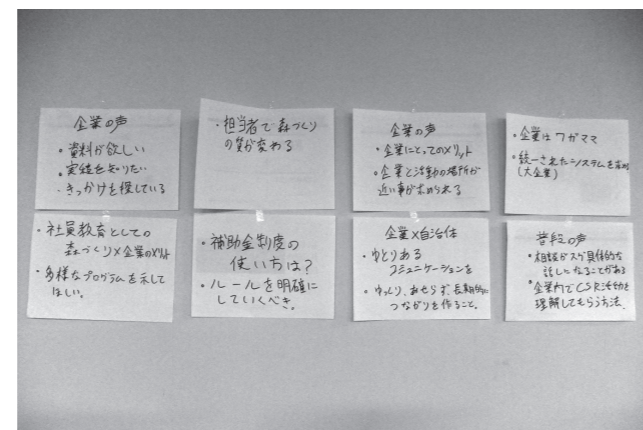 企業の声
・資料が欲しい
・実績を知りたい
・きっかけを探している
・担当者で森づくり
の質が変わる
企業の声
・企業にとってのメリット
・企業と活動の場所が
近い事が求められる
・企業はワガママ
・統一されたシステムを求める
(大企業)
・社員教育としての
森づくり×企業のメリット
・多様なプログラムを示して
ほしい。
・補助金制度の
使い方は?
・ルールを明確に
していくべき。
企業×自治体
・ゆとりある
コミュニケーションを
・ゆっくり、あせらず、長期的に
つながりを作ること。
普段の声
・相談がスグ具体的な
話しになることがある
・企業内でCSR活動を
理解してもらう方法、